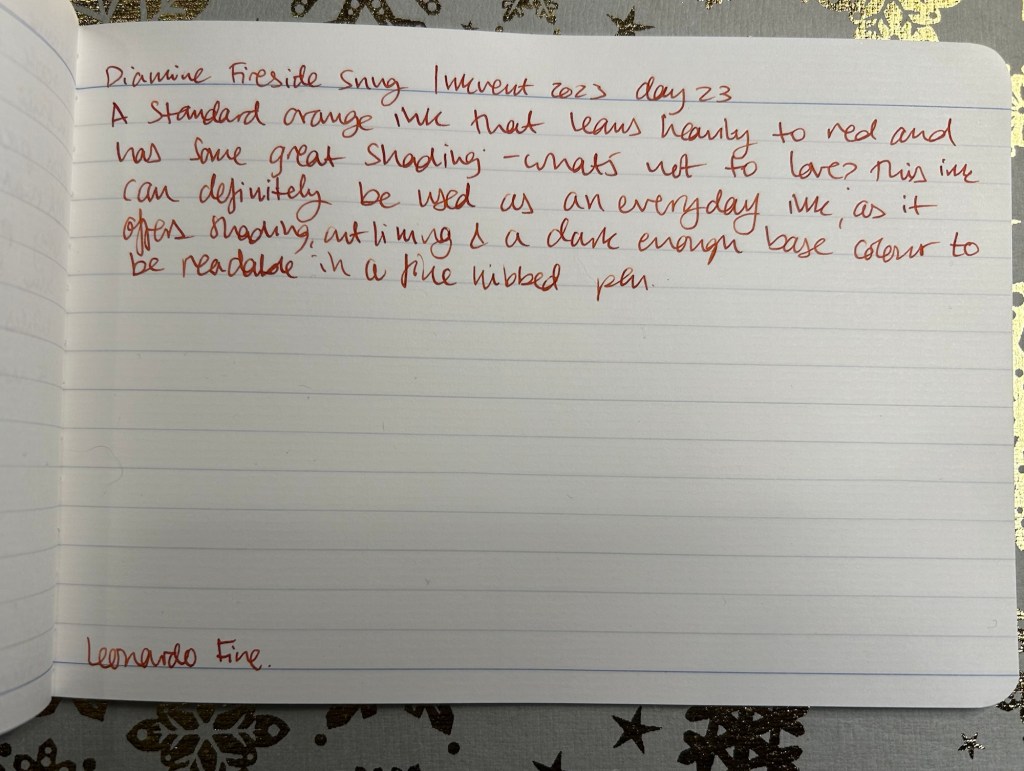 Diamine Fireside Snug Inkvent 2023 day 23
A standard orange ink that leans heavily to red and
has some great shading - whats not to love? This ink
can definitely be used as an everyday ink, as it
offers shading, outlining & a dark enough base colour to
be readable in a fine nibbed pen.
Leonardo Fine.